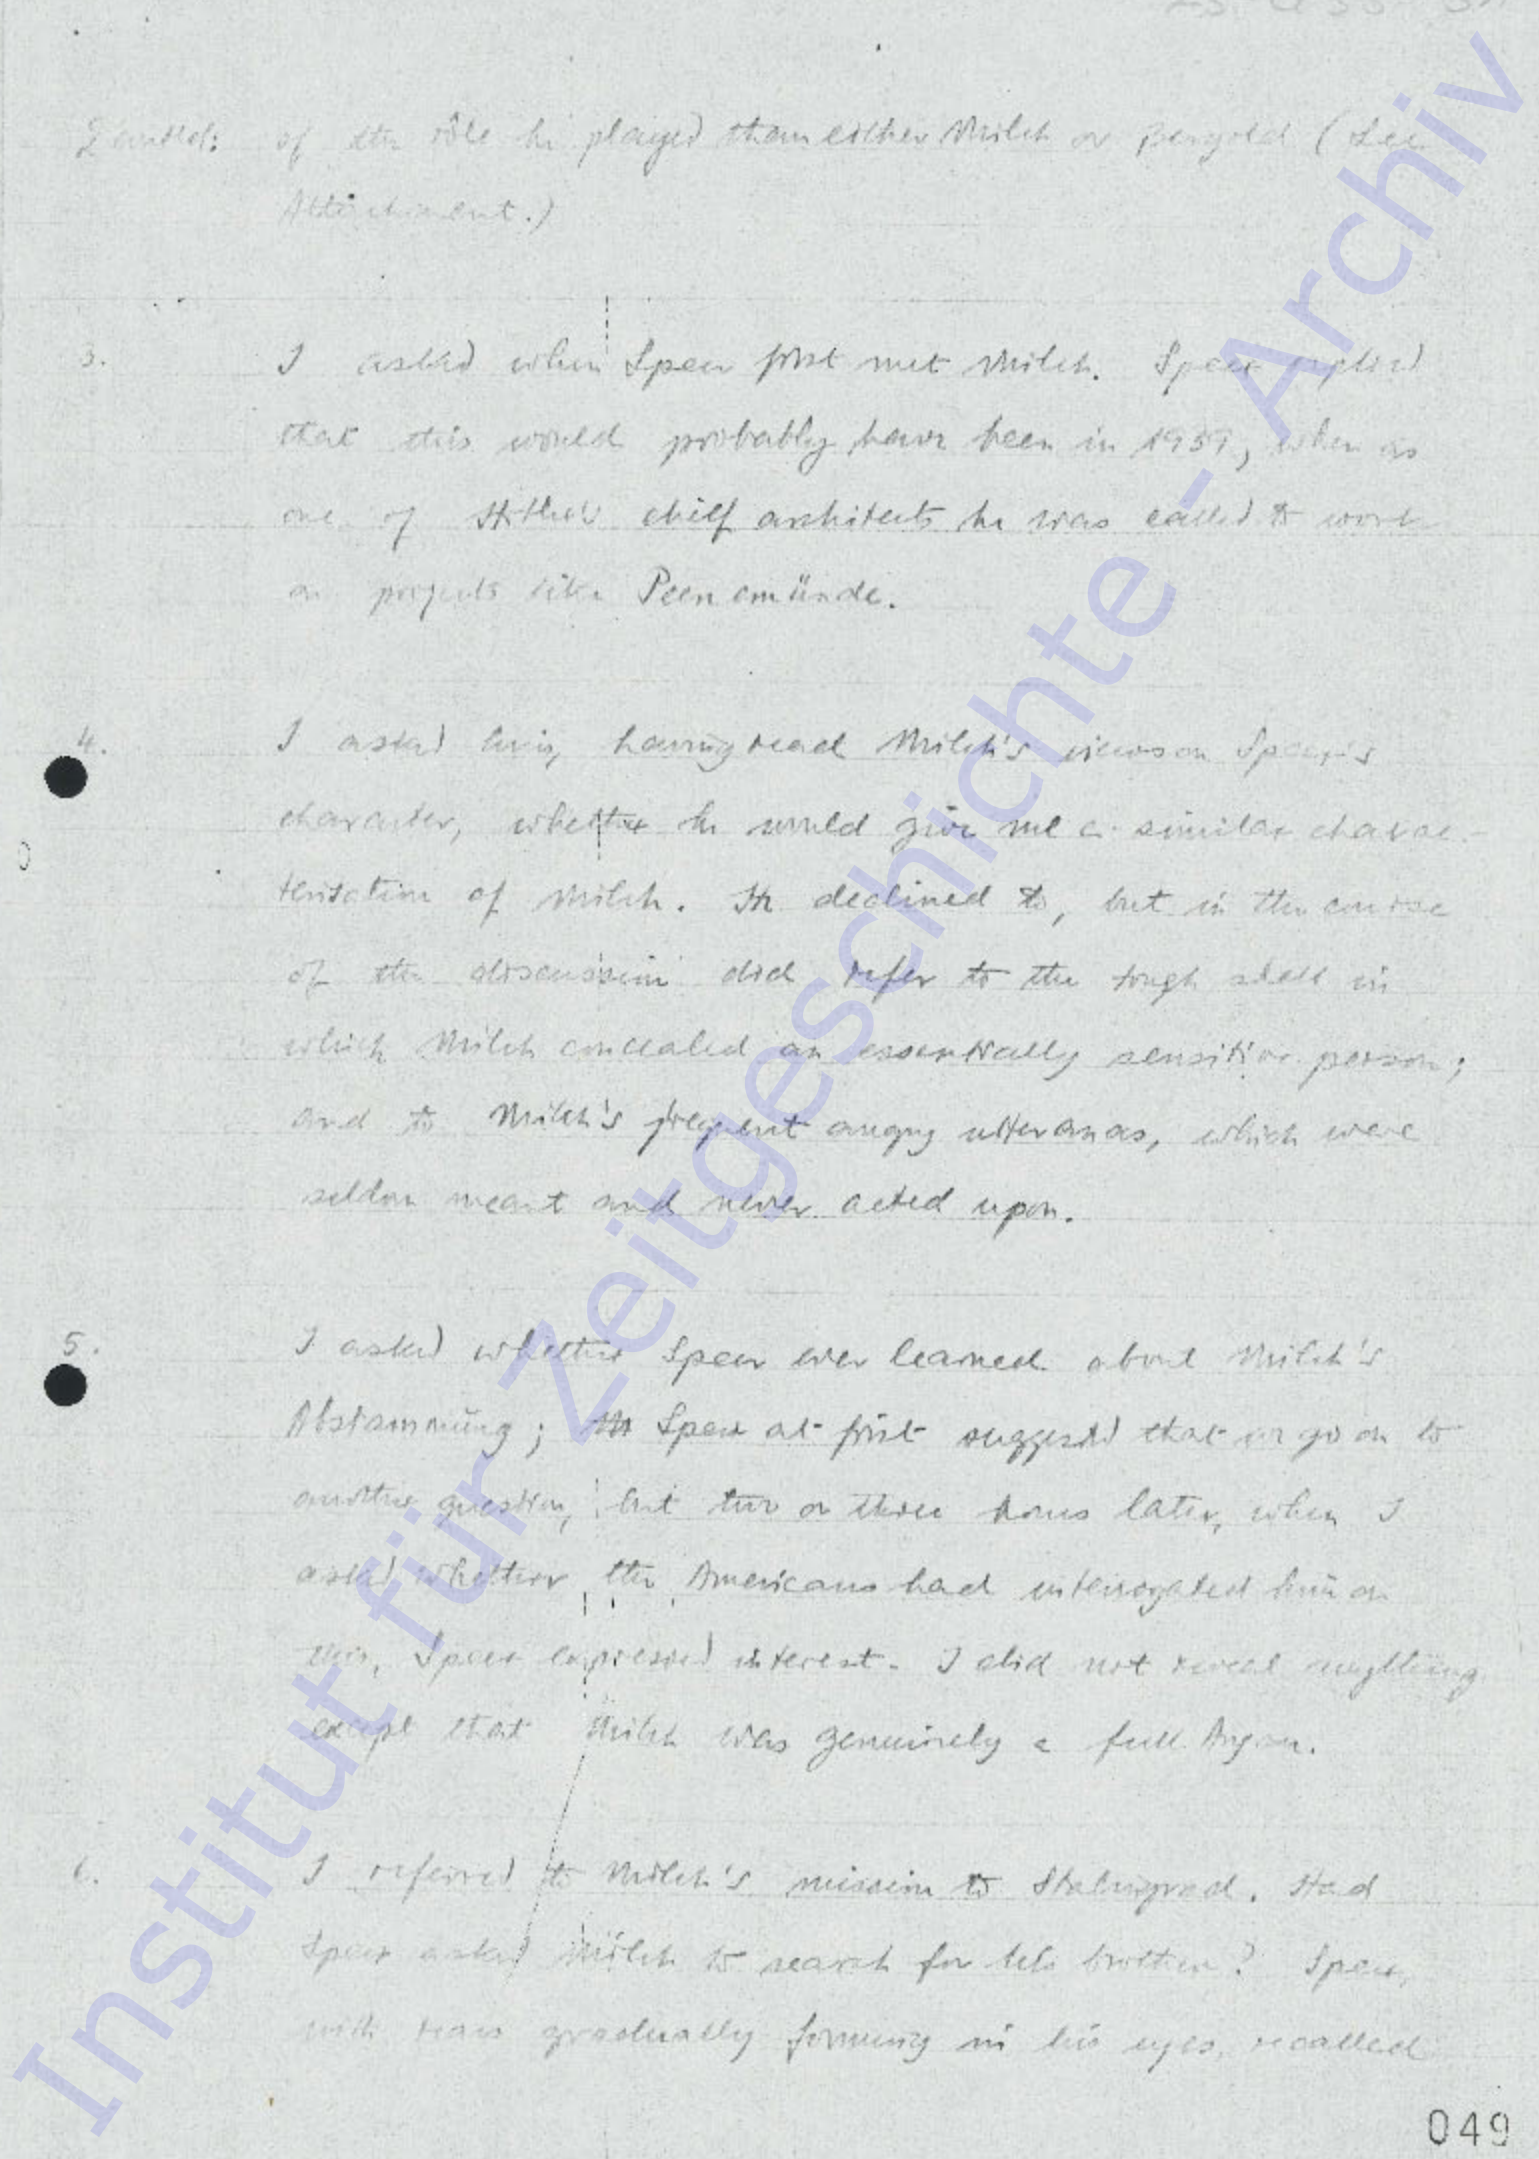 2 contd: of the rôle he played than either Milch or Bergold (See
Attachment.)
3. I asked when Speer first met Milch. Speer replied
that this would probably have been in 1939, when as
one of Hitler's chief architects he was called to work
on projects like Peenemünde.
4. I asked him, having read Milch's views on Speer's
character, whether he would give me a similar charac-
terisation of Milch. He declined to, but in the course
of the discussion did refer to the tough shell in
which Milch concealed an essentially sensitive person;
and to Milch's frequent angry utterances, which were
seldom meant and never acted upon.
5. I asked whether Speer ever learned about Milch's
Abstammung; Speer at first suggested that we go on to
another question, but two or three hours later, when I
asked whether the Americans had interrogated him on
this, Speer expressed interest. I did not reveal anything
except that Milch was genuinely a full Aryan.
6. I referred to Milch's mission to Stalingrad. Had
Speer asked Milch to search for his brother? Speer,
with tears gradually forming in his eyes, recalled
049
Institut für Zeitgeschichte - Archiv